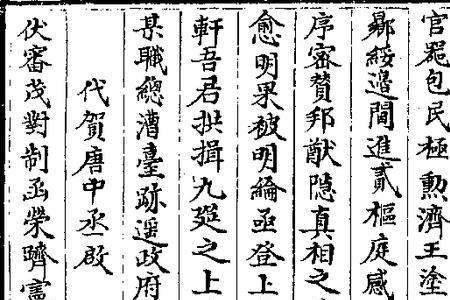 官罷包民極勳濟王塗
鄭綏邊閫進貳樞庭感
序密贊邦猷隱真相之
愈明果被明綸亟登上
軒吾君拱揖九筵之上
某職總漕臺跡遥政府
代賀唐中丞啟
伏審茂對制函榮躋憲